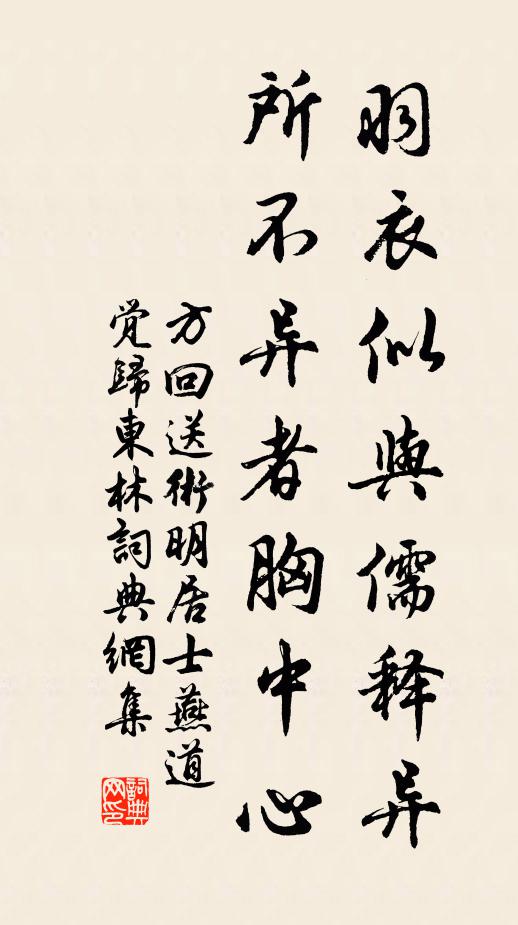 羽衣似與儒释异
所不异者胸中心
方回送術明居士燕道
覚歸東林詞典網集
詞典网印